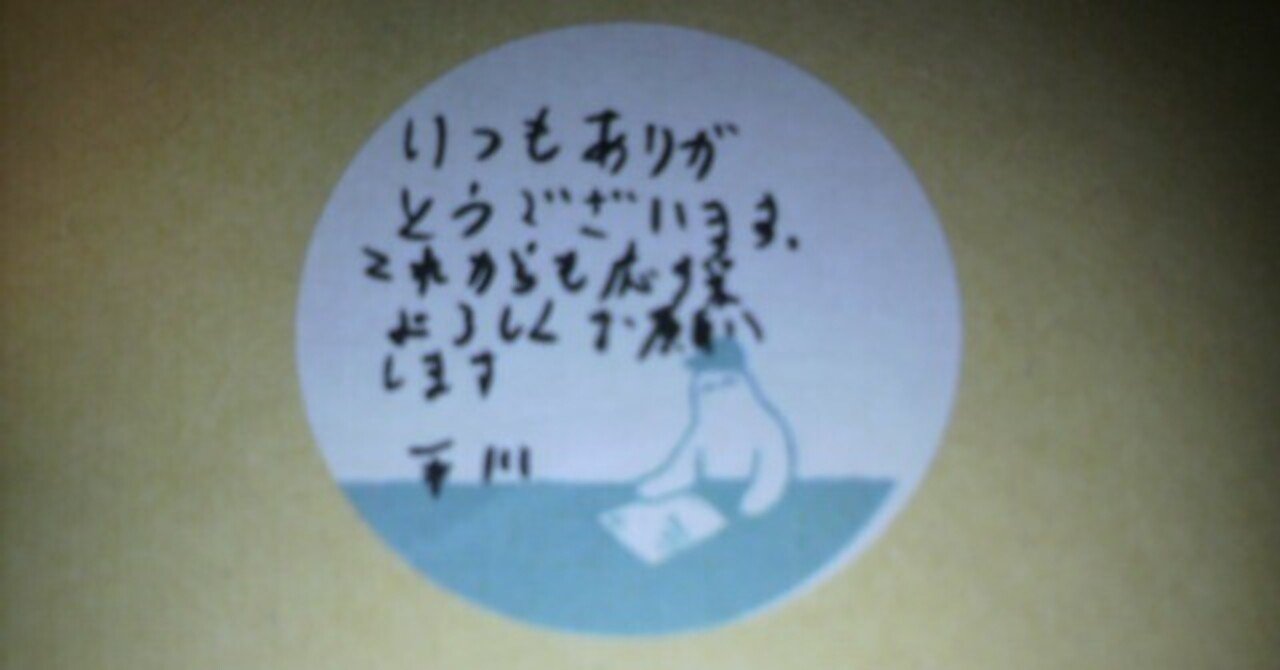 いつもありが
とうございます。
これからも応援
よろしくお願い
します
市川